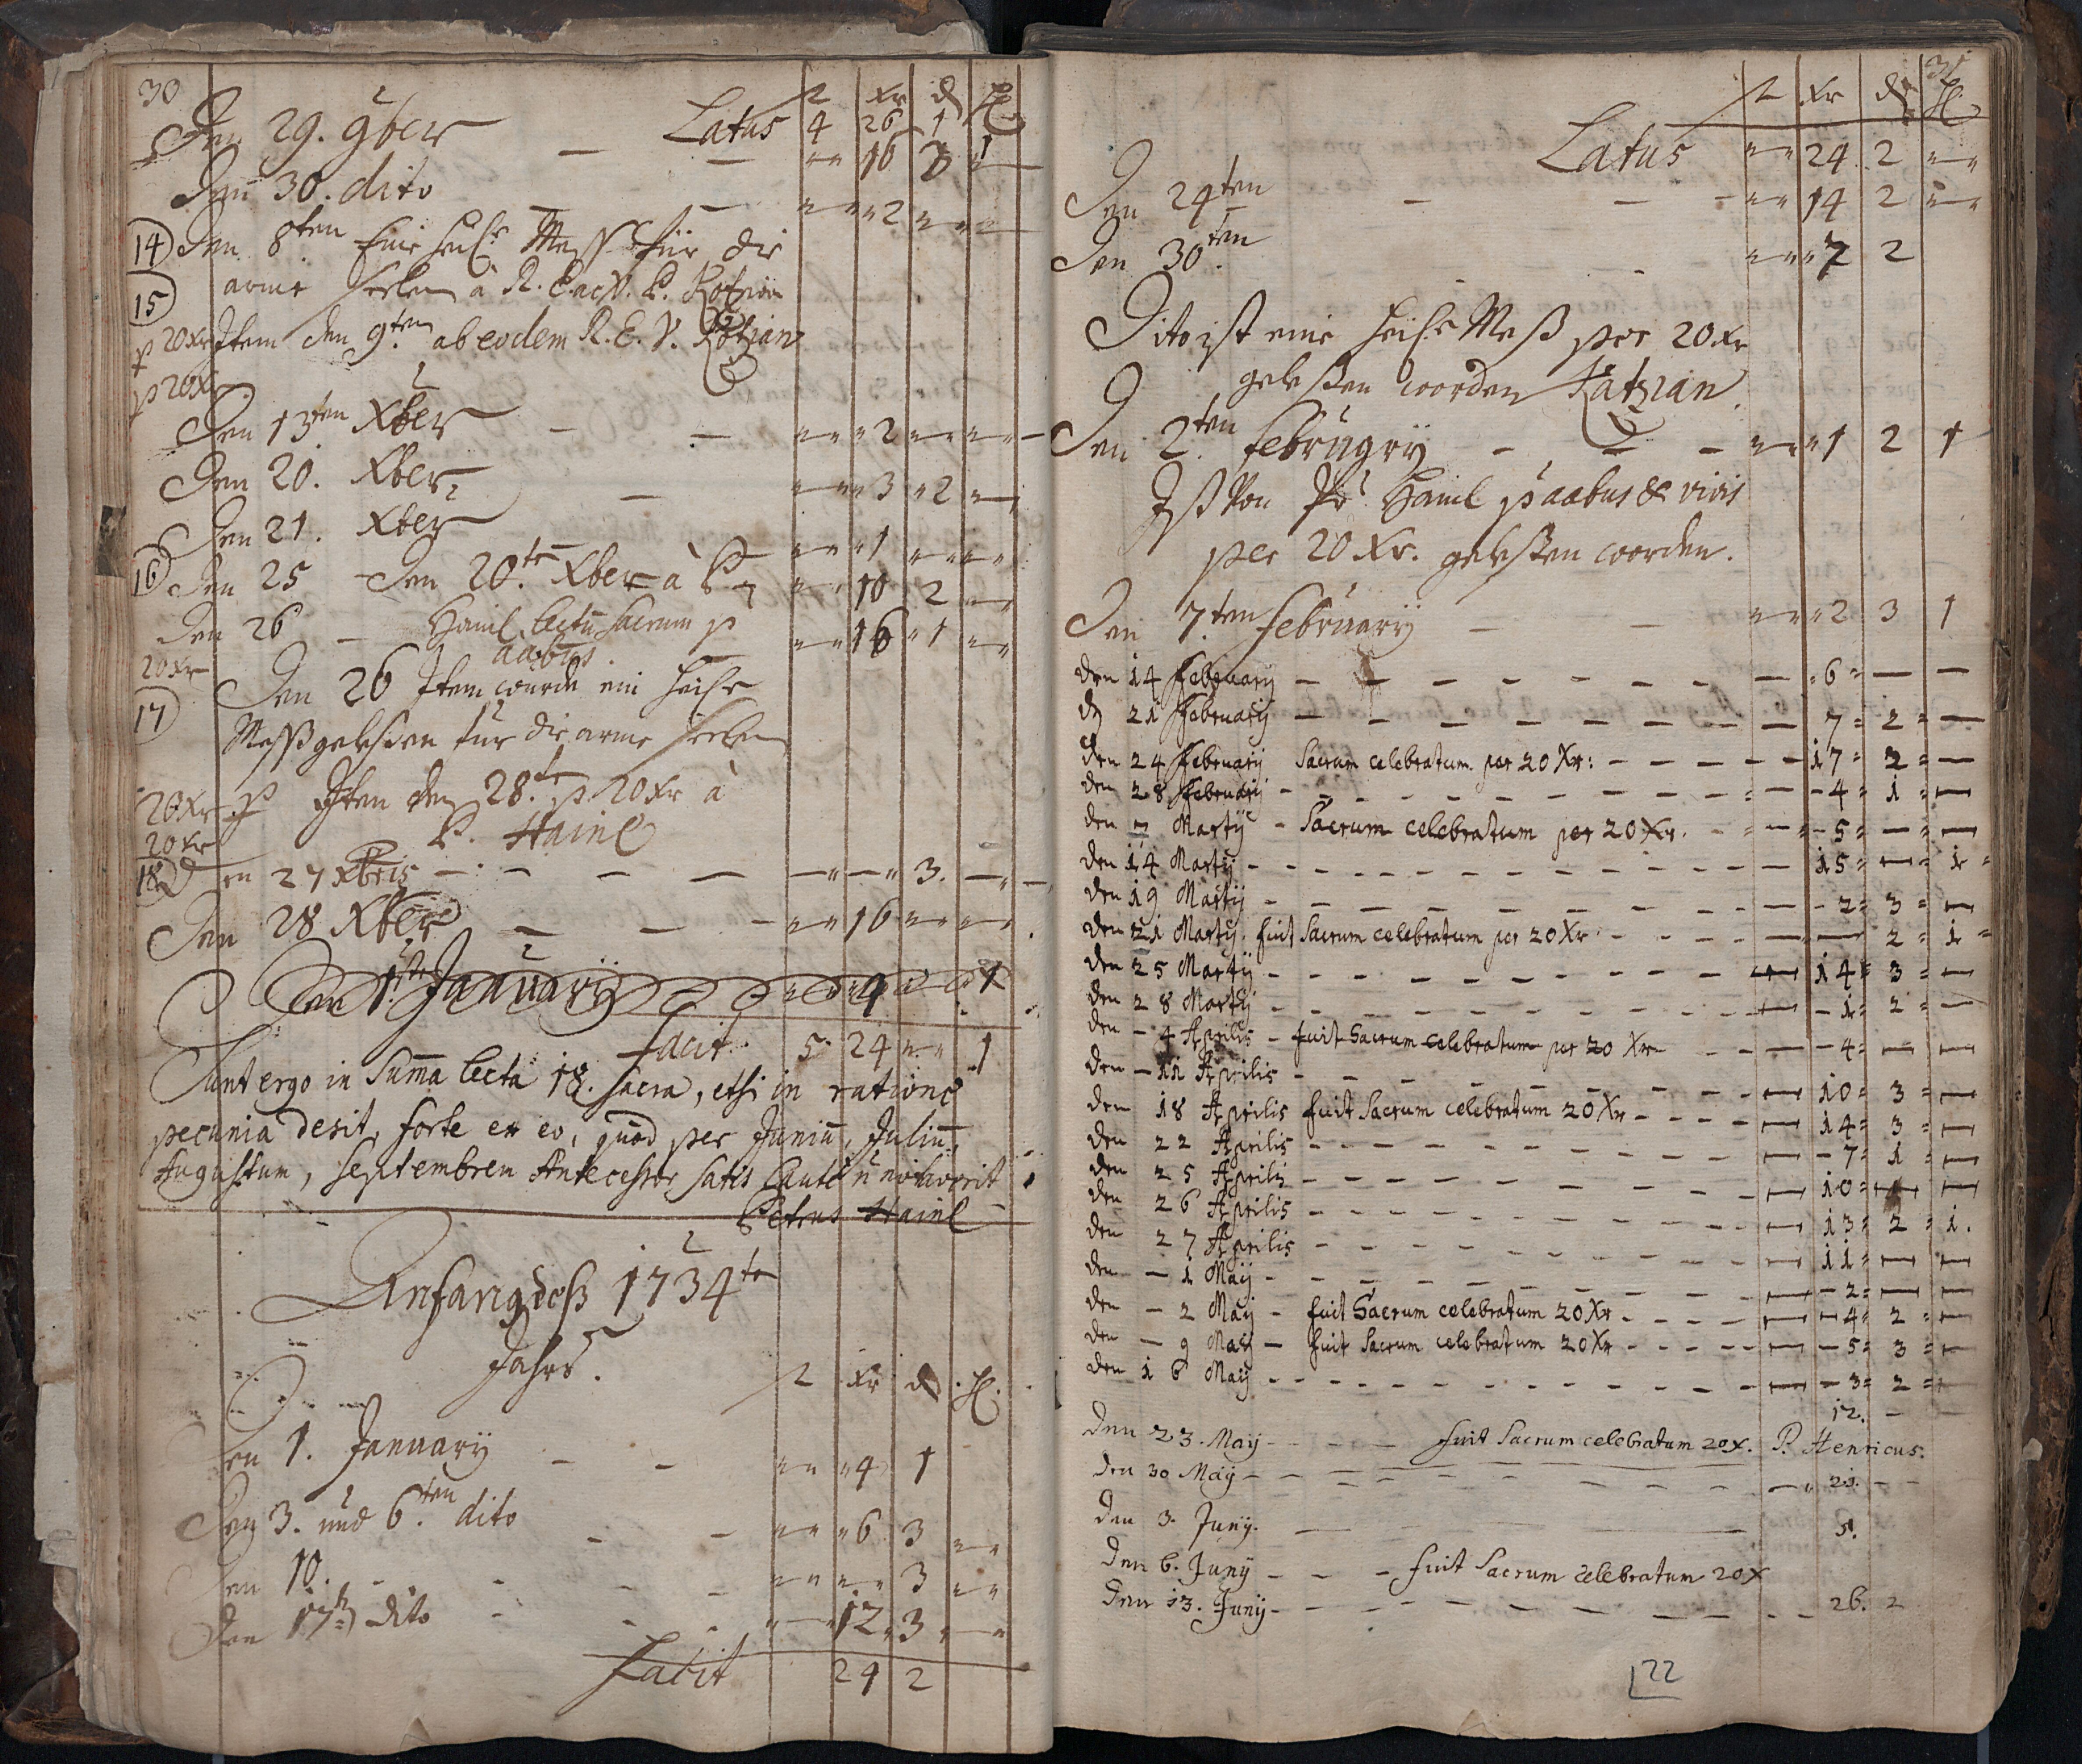 30
fl Xr d hl
Latus 4 26 1
Den 29. 9ber — — "" 16 3 1
Den 30. dito — — "" "2 "" ""
14 Den 8ten Eine heil: Mess für die
15 arme Seelen à R. C. P. Kotzian
p 20Xr Item den 9ten ab eodem R. E. V. Kotzian
p 20X
Den 13ten Xber — — "" "2 "" ""
Den 20. Xber — "" "3 "2 ""
Den 21. Xber "" "1 "" ""
16 Den 25 Den 20.te Xber à P. "" 10 2 ""
Den 26 — Hainl lectu Sacrum p "" 16 "1 ""
20Xr aabus.
17 Den 26 Item wurde ein heil:
Mess gelesen für die arme Seelen
20Xr p Item den 28.te p 20Xr à
20Xr P. Hainl
18 Den 27 Xbris — — — — 3. —
Den 28 Xber — — "" 16 "" ""
Den 1.ten January "" "4 1
Facit 5 24 "" 1
Sunt ergo in Suma lecta 18. sacra, etsi in ratione
pecunia desit, forte ex eo, quod per Juniu, Juliu,
Augustum, Septembrem Antecessor satis caute n notaverit
Petrus Hainl
Anfang deß 1734te
Jahrs.
fl Xr d hl.
Den 1. January — — "" "4 1
Den 3. und 6.ten dito — — "" "6 3 ""
Den 10. — — "" "" 3 ""
Den 17 dito — — 12 3 ""
Facit 24 2
31
fl Xr d hl.
Latus "" 24 2 ""
Den 24ten — — "" 14 2 ""
Den 30ten — "" "7 2
Dito ist eine heil: Meß per 20Xr
geleßen worden Katzian.
Den 2.ten February — — — "" "1 2 1
Ist von Pr Hainl p aabus & vivis
per 20 Xr. geleßen worden.
Den 7.ten February — — "" "2 3 1
den 14 February — — — — — — — — = 6 = — —
d 21 February — — — — — — — — 7 = 2 = —
den 24 February Sacrum celebratum per 20 Xr: — — — — — 17 = 2 = —
den 28 February - - - - - - - - - - 4 = 1 = —
den 7 Martij - Sacrum celebratum per 20 Xr. - - - - 5 = — = —
den 14 Martij - - - - - - - - - - — 15 = — = 1 =
den 19 Martij - - - - - - - - - - 2 = 3 = —
den 21 Martij. fuit Sacrum celebratum per 20 Xr - - - - — — 2 = 1 =
den 25 Martij - - - - - - - - - — 14 = 3 = —
den 28 Martij - - - - - - - - - — - 1 = 2 = —
den - 4 Aprilis - fuit Sacrum celebratum per 20 Xr - - - — - 4 = — —
den - 11 Aprilis - - - - - - - - - — 10 = 3 = —
den 18 Aprilis fuit Sacrum celebratum 20 Xr - - - - — 14 = 3 = —
den 22 Aprilis - - - - - - - - - — - 7 = 1 = —
den 25 Aprilis - - - - - - - - - — 10 = — —
den 26 Aprilis - - - - - - - - - — 13 = 2 = 1.
den 27 Aprilis - - - - - - - - - — 11 = — —
den - 1 Maij - - - - - - - - - - — - 2 = — —
den - 2 Maij - fuit Sacrum celebratum 20 Xr - - - - — - 4 = 2 = —
den - 9 Maij - fuit Sacrum celebratum 20 Xr - - - - - — - 5 = 3 = —
den 16 Maij - - - - - - - - - - - — - 3 = 2 =
12. —
Den 23. Maij - - - - fuit Sacrum celebratum 20X. P. Henricus.
Den 30 Maij - - - - - - - - - - - - 21. - -
Den 3. Junij. — — 5.
Den 6. Junij - - - fuit Sacrum celebratum 20X
Den 13. Junij - - - - - - - - - - - - 26. 2
22